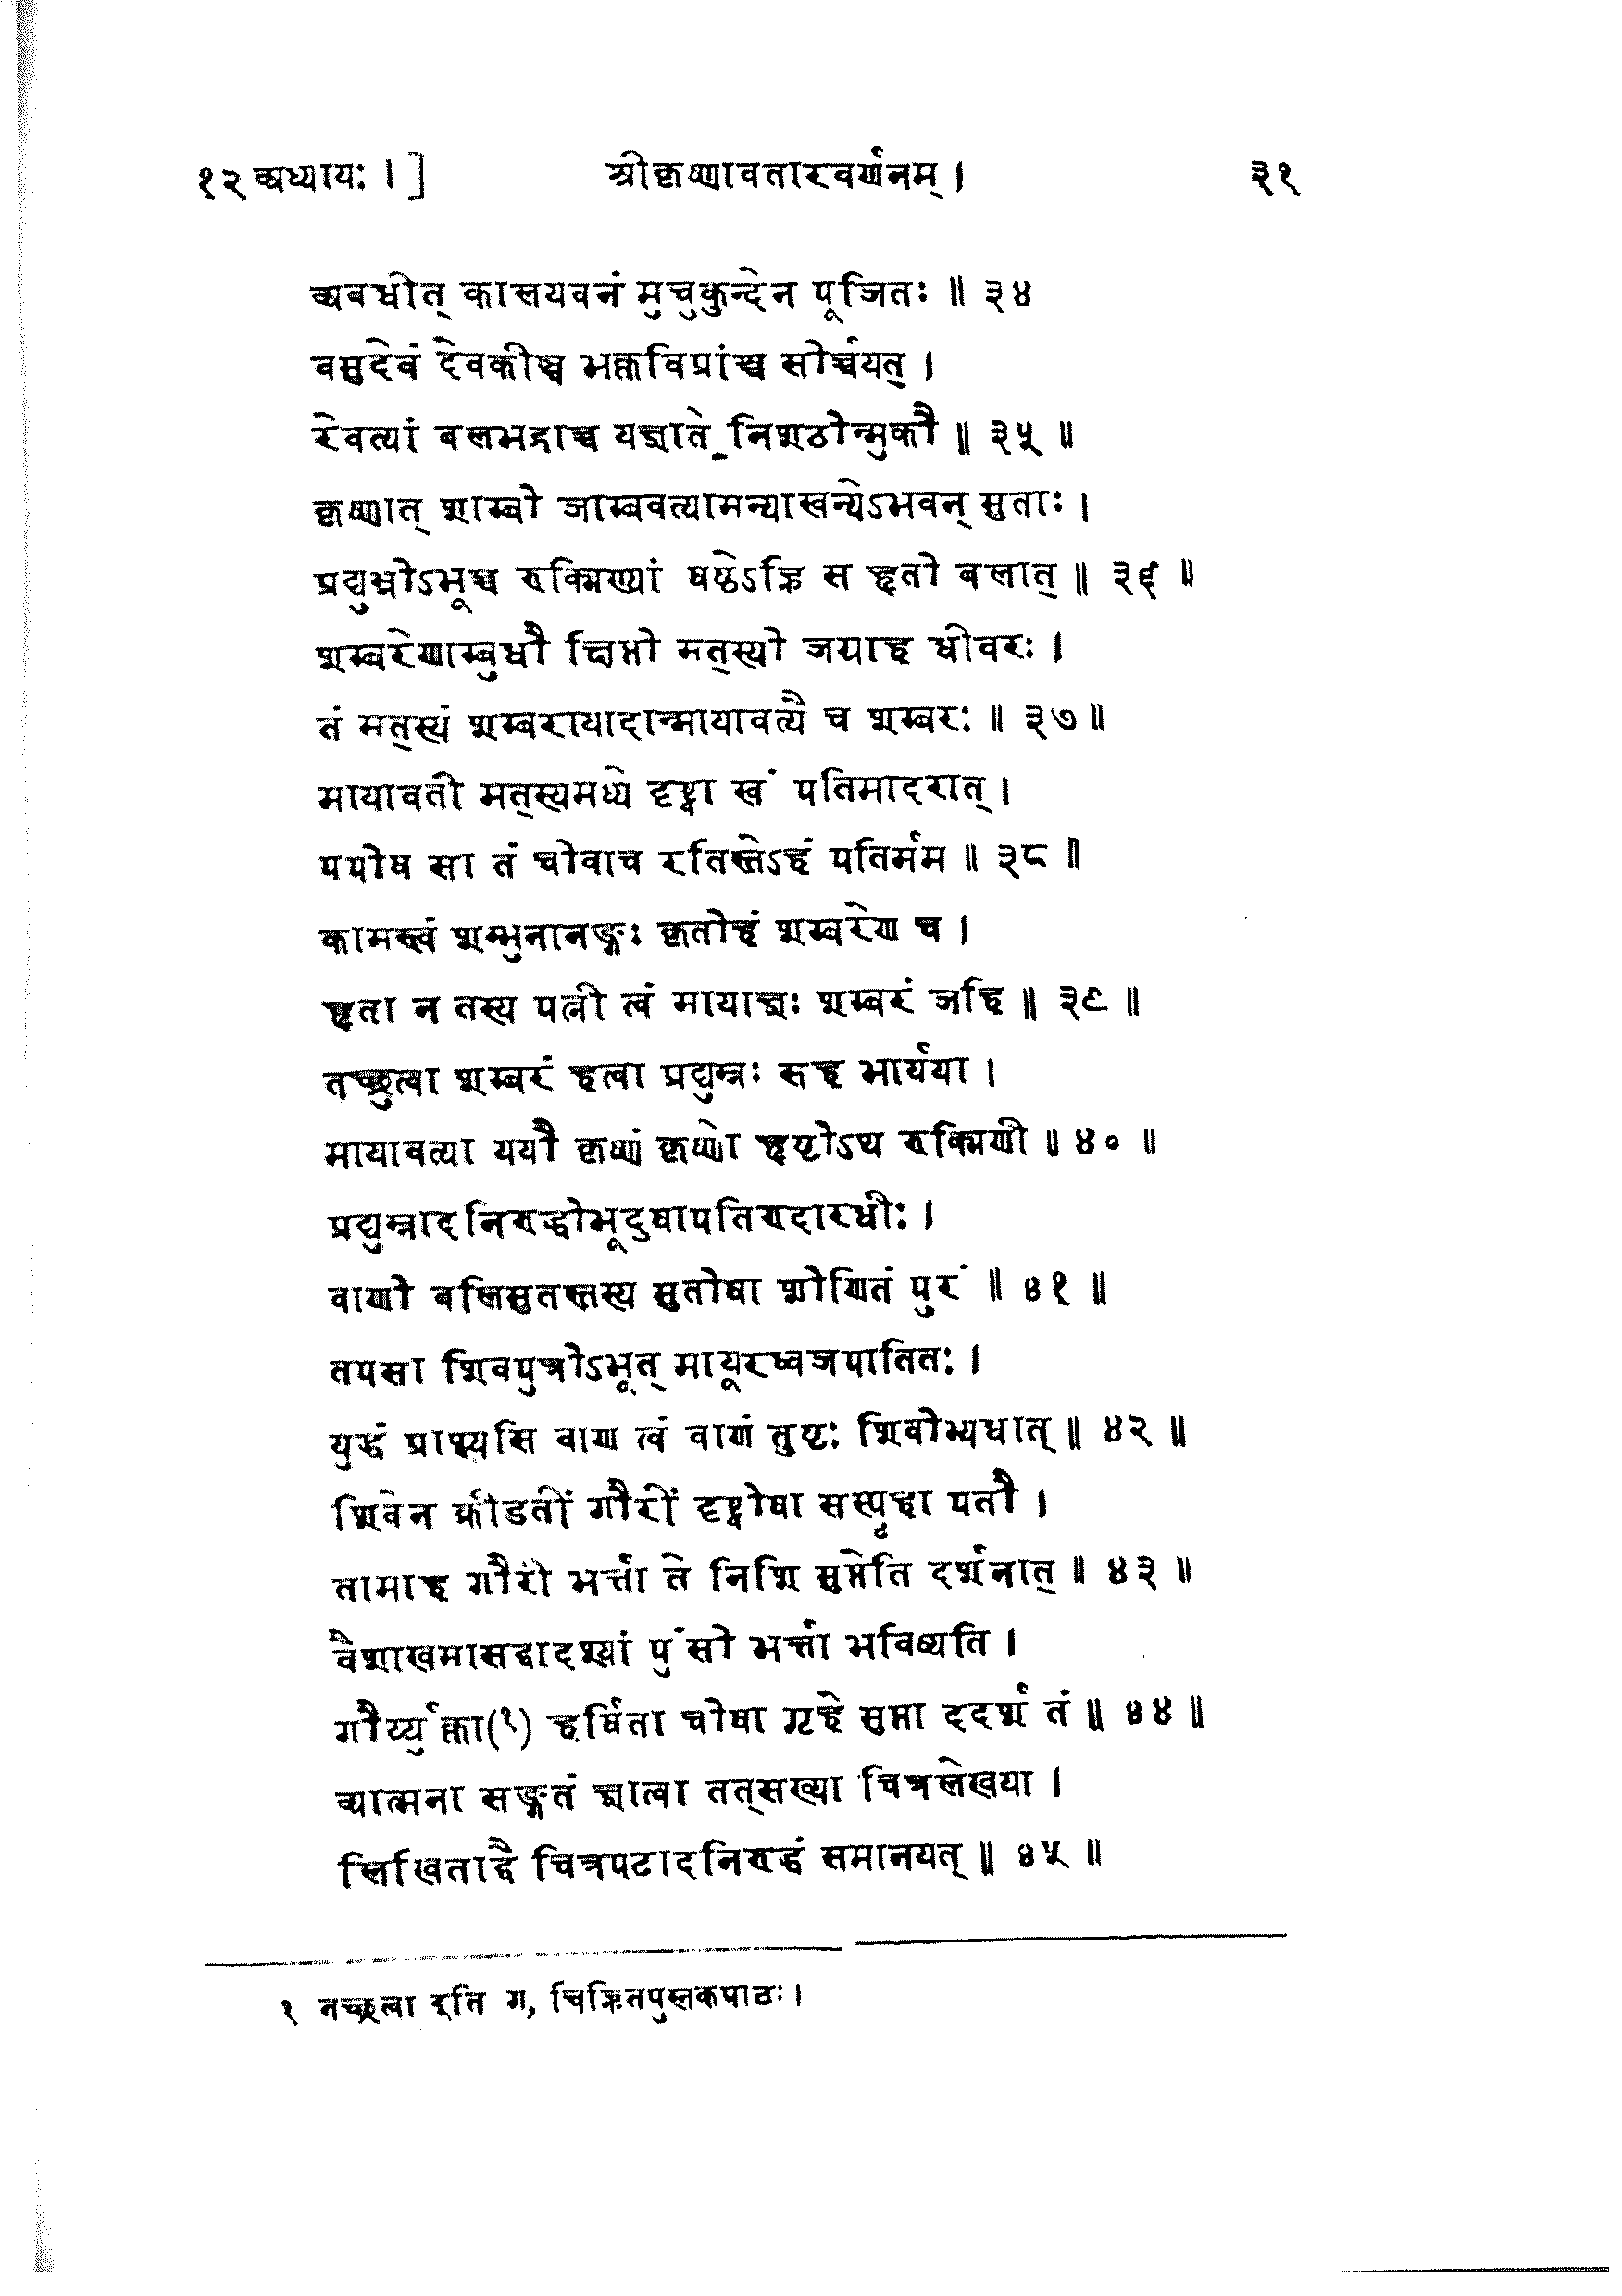 १२ अध्यायः ।] श्रीकृष्णावतारवर्णनम् । ३१
अबधीत् कालयवनं मुचुकुन्देन पूजितः ॥ ३४
वसुदेवं देवकीञ्च भक्तविप्रांश्च सोर्च्चयत् ।
रेवत्यां बलभद्राच्च यज्ञाते निशठोन्मुकौ ॥ ३५ ॥
कृष्णात् शाम्बो जाम्बवत्यामन्यास्वन्येऽभवन् सुताः ।
प्रद्युम्नोऽभूच्च रुक्मिण्यां षष्ठेऽह्नि स हृतो बलात् ॥ ३६ ॥
शम्बरेणाम्बुधौ क्षिप्तो मत्स्यो जग्राह धीवरः ।
तं मत्स्यं शम्बरायादान्मायावत्यै च शम्बरः ॥ ३७ ॥
मायावती मत्स्यमध्ये दृष्ट्वा स्वं पतिमादरात् ।
पपोष सा तं चोवाच रतिस्तेऽहं पतिर्मम ॥ ३८ ॥
कामस्त्वं शम्भुनानङ्गः कृतोहं शम्बरेण च ।
हृता न तस्य पत्नी त्वं मायाज्ञः शम्बरं जहि ॥ ३९ ॥
तच्छ्रुत्वा शम्बरं हत्वा प्रद्युम्नः सह भार्यया ।
मायावत्या ययौ कृष्णं कृष्णो हृष्टोऽथ रुक्मिणी ॥ ४० ॥
प्रद्युम्नादनिरुद्धोभूदुषापतिरुदारधीः ।
वाणो बलिसुतस्तस्य सुतोषा शोणितं पुरं ॥ ४१ ॥
तपसा शिवपुत्रोऽभूत् मायूरध्वजपातितः ।
युद्धं प्राप्स्यसि वाण त्वं वाणं तुष्टः शिवोभ्यधात् ॥ ४२ ॥
शिवेन क्रीडतीं गौरीं दृष्ट्वोषा सस्पृहा पतौ ।
तामाह गौरी भर्त्ता ते निशि सुप्तेति दर्शनात् ॥ ४३ ॥
वैशाखमासद्वादश्यां पुंसो भर्त्ता भविष्यति ।
गौर्य्युक्ता(१) हर्षिता चोषा गृहे सुप्ता ददर्श तं ॥ ४४ ॥
आत्मना सङ्गतं ज्ञात्वा तत्सख्या चित्रलेखया ।
लिखिताद्वै चित्रपटादनिरुद्धं समानयत् ॥ ४५ ॥
१ तच्छ्रुत्वा इति ग, चिह्नितपुस्तकपाठः ।